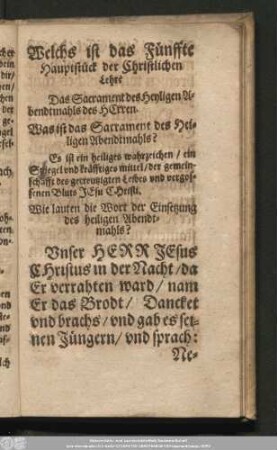 Welchs ist das Fünffte
Hauptstück der Christlichen
Lehre
Das Sacrament des Heyligen A-
bendtmahls des HErren.
Was ist das Sacrament des Hei-
ligen Abendtmahls?
Es ist ein heiliges wahrzeichen / ein
Spiegel und kräfftiges mittel / der gemein-
schafft des gecreutzigten Leibes und vergos-
senen Bluts JEsu Christi.
Wie lauten die Wort der Einsetzung
des heiligen Abendt-
mahls?
Vnser HERR JEsus
CHristus in der Nacht / da
Er verrahten ward / nam
Er das Brodt / Dancket
vnd brachs / vnd gab es sei-
nen Jüngern / vnd sprach:
Ne-